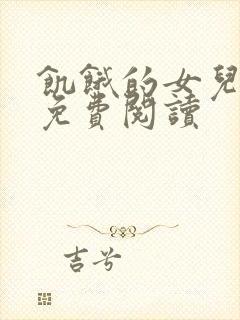 飢餓的女兒
免費閱讀
吉兮